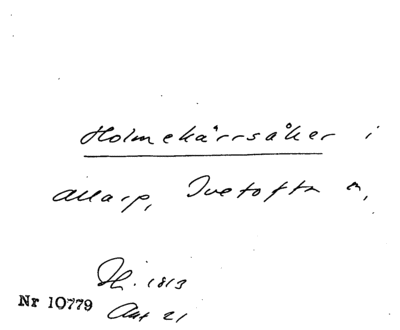 Holmekärrsåker i
Allarp, Ivetofta n,
Sk. 1813
Nr 10779 Akt 21